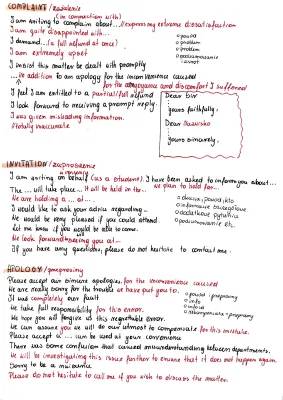 COMPLAINT / zażalenie
(in connection with)
I am writing to complain about... // express my extreme dissatisfaction
I am quite disappointed with...
I demand... (a full refund at once)
I am extremely upset
I insist this matter be dealt with promptly
... in addition to an apology for the inconvenience caused
for the annoyance and discomfort I suffered
I feel I am entitled to a partial/full refund
I look forward to receiving a prompt reply.
I was given misleading information.
#totally inaccurate
powód
problem
problem
podsumowanie
zwrot
Dear Sir
yours faithfully,
Dear
yours sincerely,
INVITATION / zaproszenie
I am writing on behalf (as a student). I have been asked to inform you about...
The ... will take place... It will be held in the... we plan to hold for...
We are holding a ... at...
I would like to ask your advice regarding...
We would be very pleased if you could attend.
Let me know if you would be able to come.
We look forward meeting you at...
If you have any questions, please do not hesitate to contact me.
dodatkowe pytania
podsumowanie etc.
APOLOGY / przeprosiny
Please accept our sincere apologies for the inconvenience caused
We are really sorry for the trouble we have put you to.
It was completely our fault
We take full responsibility for this error.
We hope you will forgive us this regrettable error.
We can assure you we will do our utmost to compensate for this mistake.
Please accept a ... can be used at your convenience
There was some confusion that caused misunderstanding between departments.
We will be investigating this issue further to ensure that it does not happen again.
Owing to a
Please do not hesitate to call me if you wish to discuss the matter.
powód + przeprosiny
info